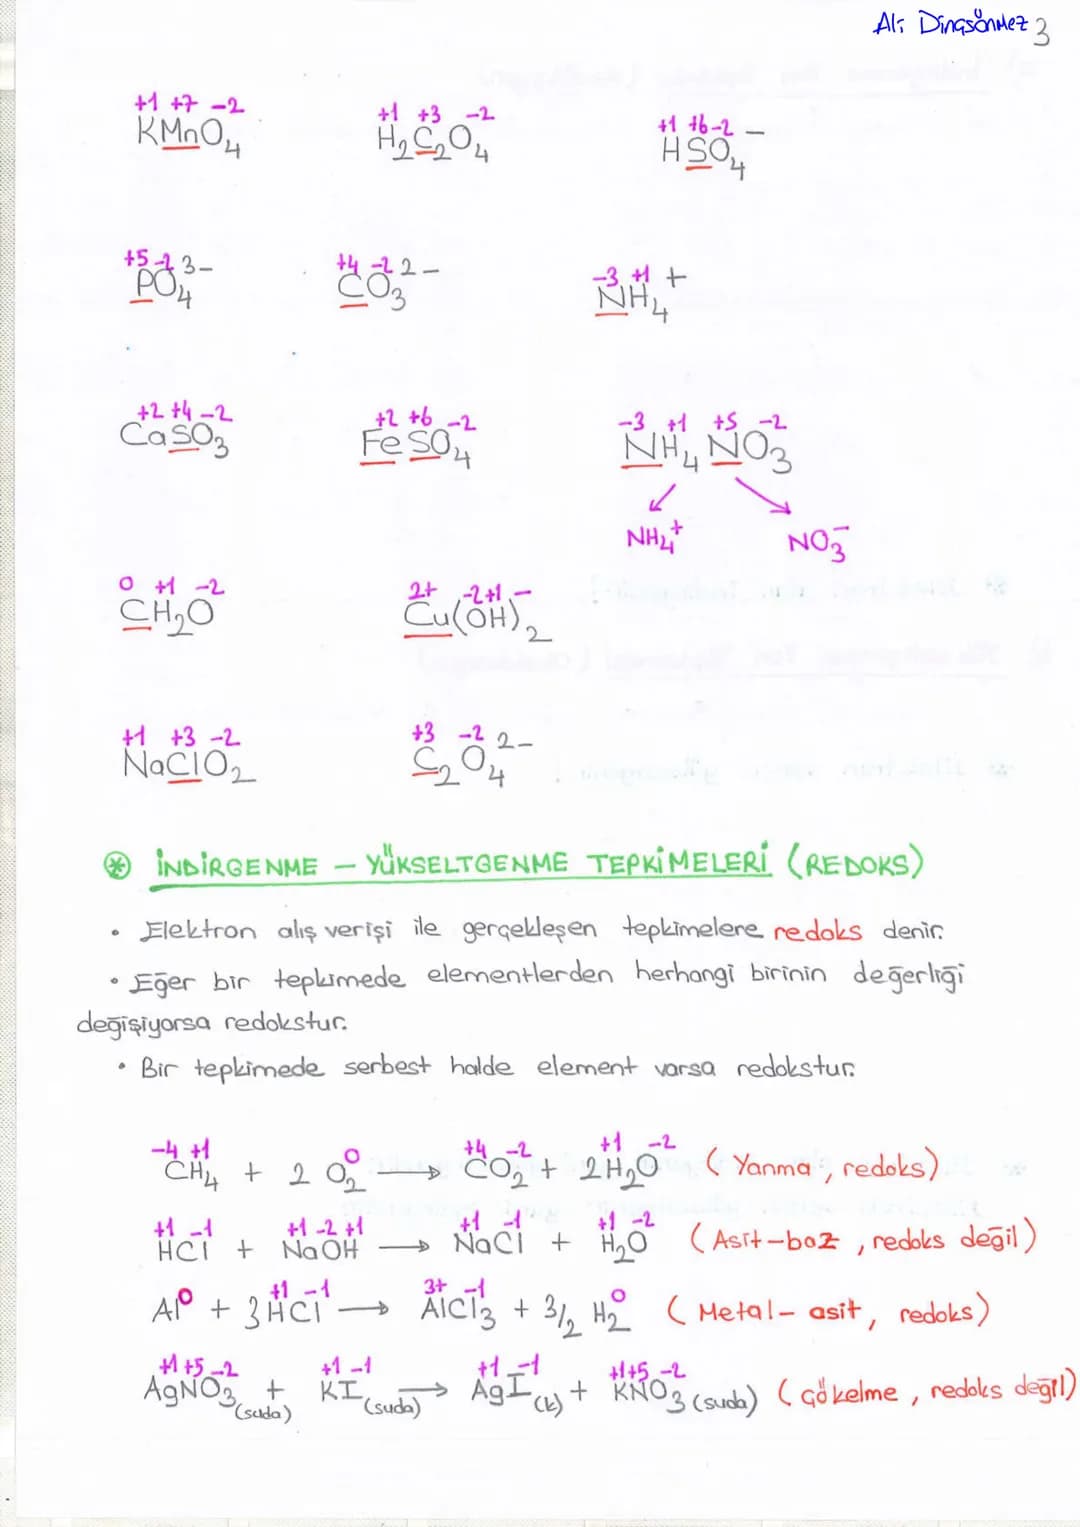 Ali Dinçsönmez 3
+1 +7 -2 +1 +3 -2 +1 +6 -2
KMnO₄ H₂C₂O₄ HSO₄⁻
+5 -2 +4 -2 -3 +1
PO₄³⁻ CO₃²⁻ NH₄⁺
+2 +4 -2 +2 +6 -2 -3 +1 +5 -2
CaSO₃ FeSO₄ NH₄NO₃
NH₄⁺ NO₃⁻
0 +1 -2 2+ -2 +1 -
CH₂O Cu(OH)₂
+1 +3 -2 +3 -2
NaClO₂ C₂O₄²⁻
⊛ İNDİRGENME – YÜKSELTGENME TEPKİMELERİ (REDOKS)
• Elektron alış verişi ile gerçekleşen tepkimelere redoks denir.
• Eğer bir tepkimede elementlerden herhangi birinin değerliği
değişiyorsa redokstur.
• Bir tepkimede serbest halde element varsa redokstur.
-4 +1 0 +4 -2 +1 -2
CH₄ + 2 O₂ → CO₂ + 2H₂O (Yanma, redoks)
+1 -1 +1 -2 +1 +1 -1 +1 -2
HCl + NaOH → NaCl + H₂O (Asit-baz, redoks değil)
0 +1 -1 3+ -1 0
Al + 3HCl → AlCl₃ + 3/2 H₂ (Metal-asit, redoks)
+1 +5 -2 +1 -1 +1 -1 +1 +5 -2
AgNO₃(suda) + KI(suda) → AgI(k) + KNO₃(suda) (Çökelme, redoks değil)